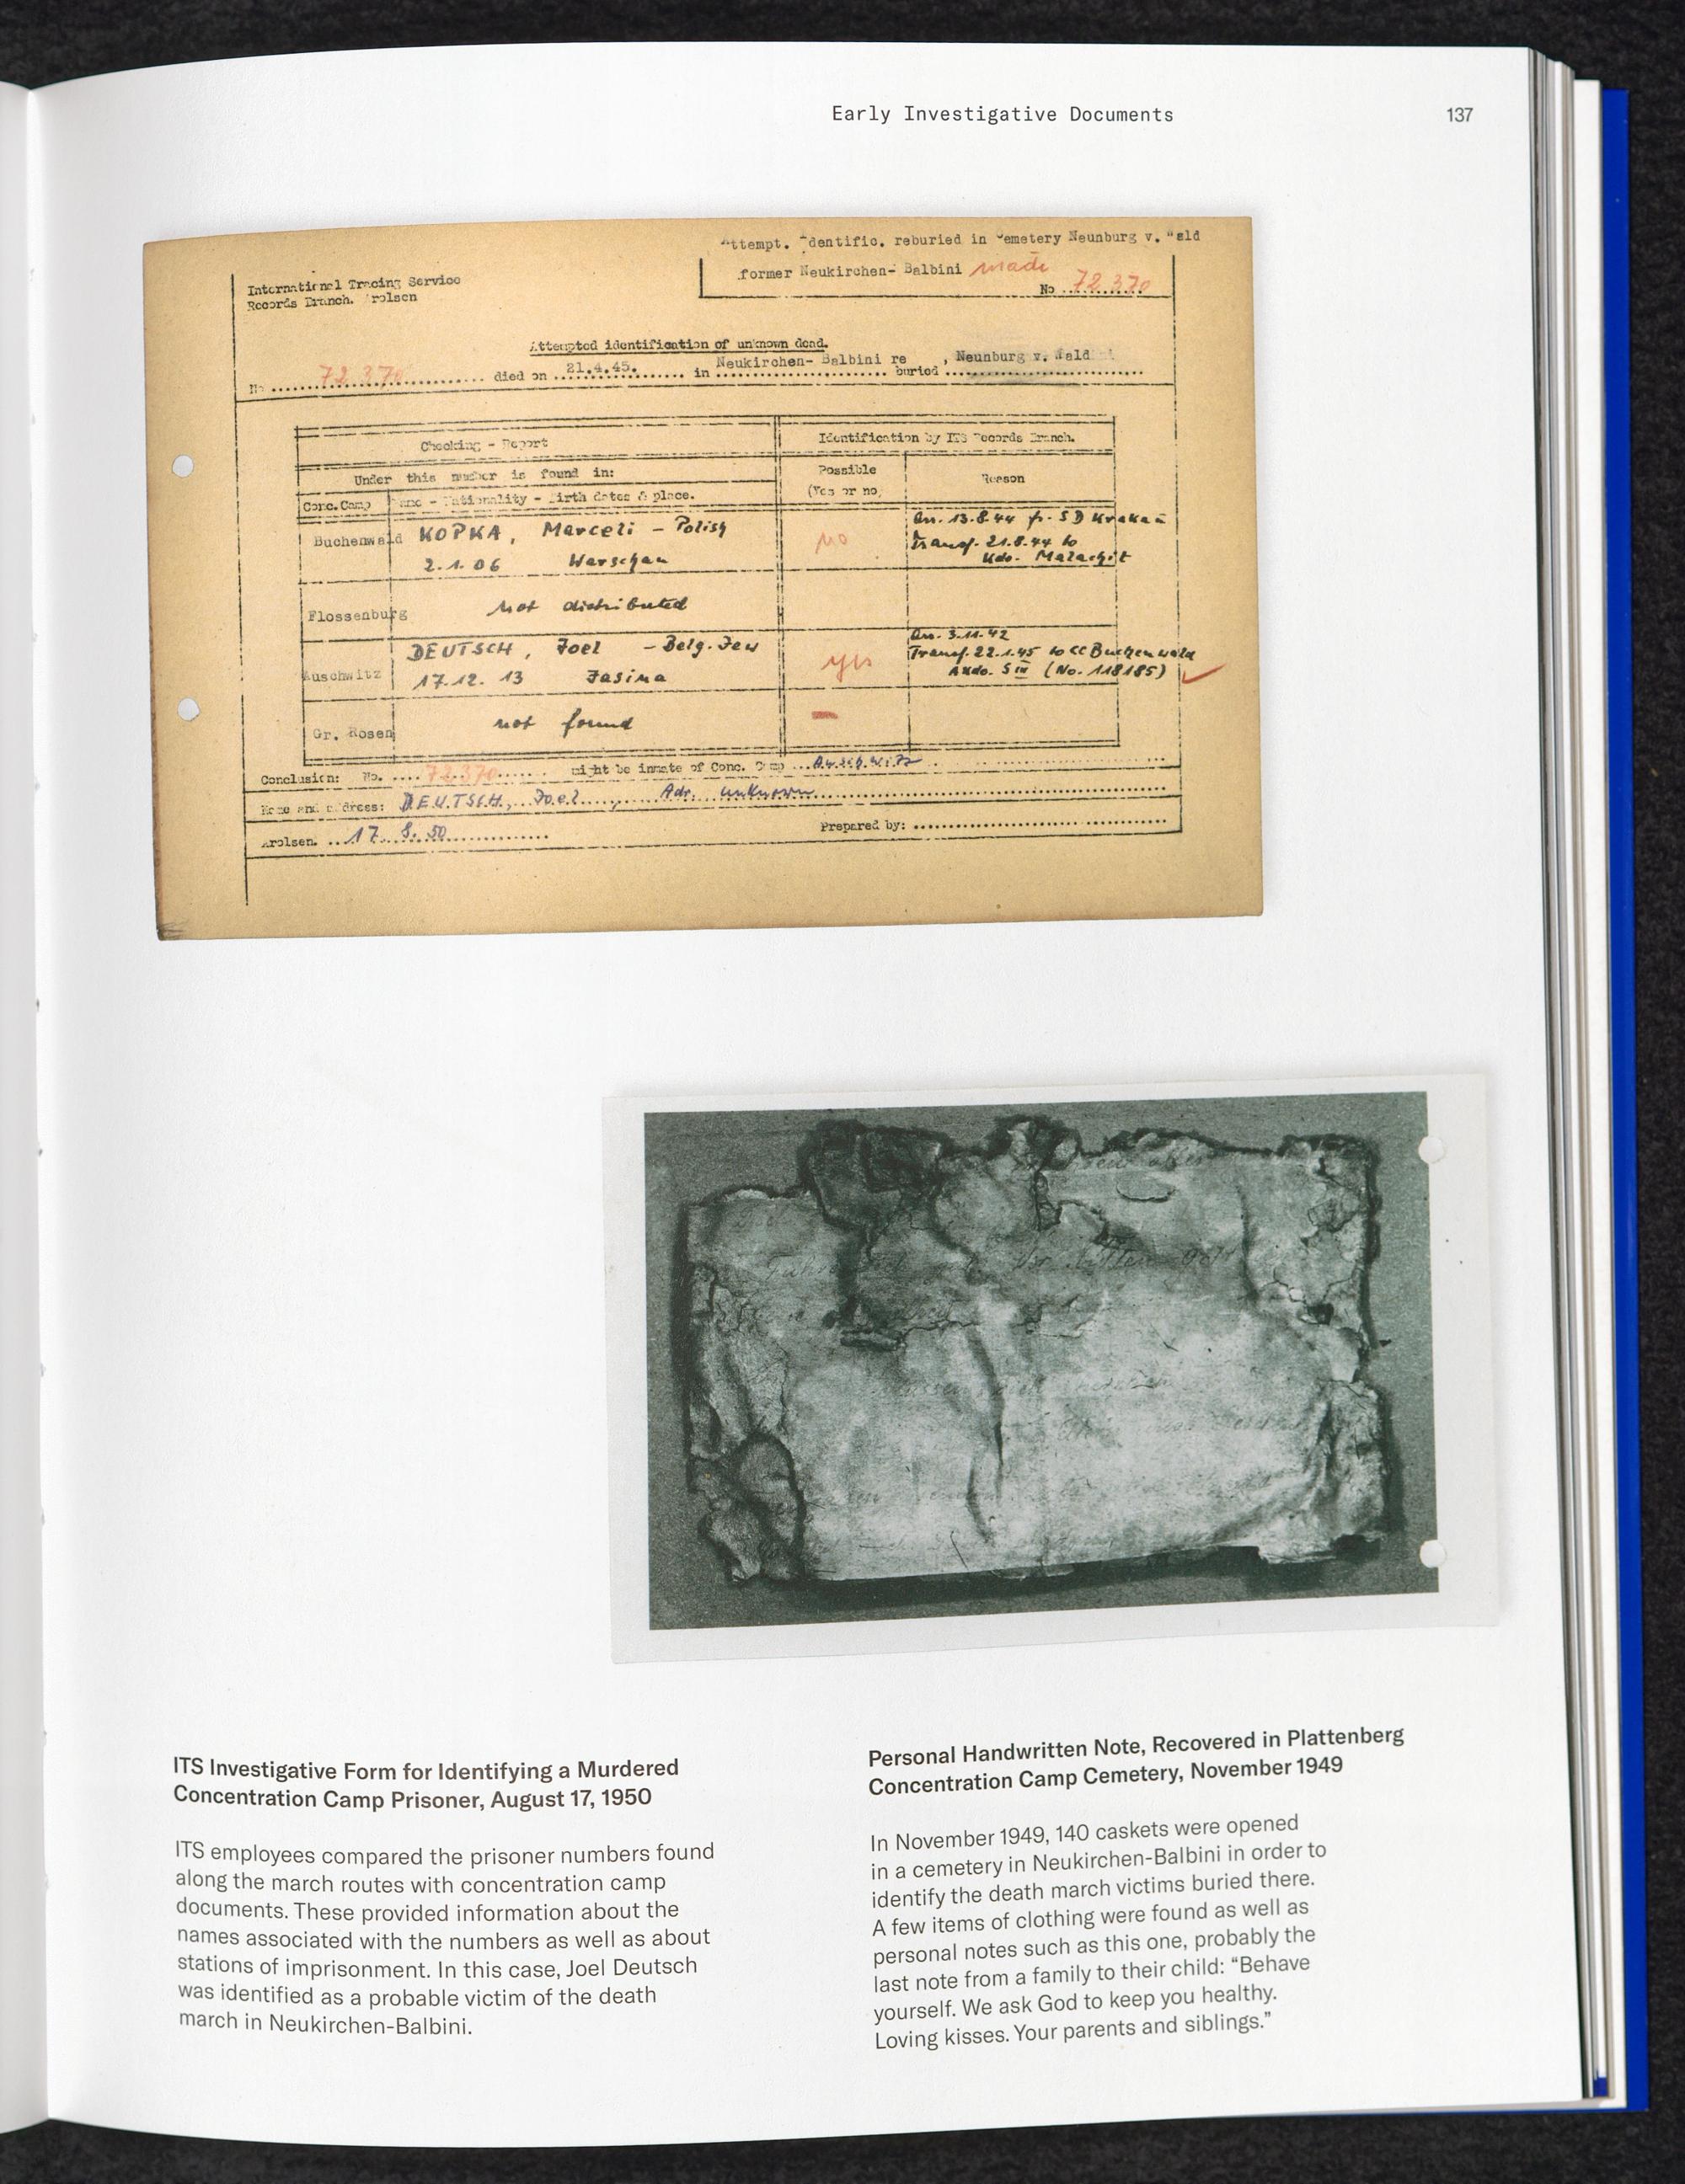 Early Investigative Documents
137
ttempt. dentific. reburied in emetery Neunburg v. ald
former Neukirchen- Balbini made
No 72370
International Tracing Service
Records Branch. rolsen
Attempted identification of unknown dead.
No 72370 died on 21.4.45. in Neukirchen- Balbini re buried , Neunburg v. Wald
Checking - Report
Identification by ITS Records Branch.
Under this number is found in:
Possible
(Yes or no)
Reason
Conc.Camp
Name - Nationality - Birth dates & place.
Buchenwald
KOPKA, Marceli - Polish
2.1.06 Warschau
no
Arr. 13.8.44 fr. SD Krakau
Transf. 21.8.44 to
Kdo. Malachit
Flossenburg
not distributed
Auschwitz
DEUTSCH, Joel - Belg. Jew
17.12.13 Jasina
yes
Arr. 3.11.42
Transf. 22.1.45 to CC Buchenwald
AKdo. S III (No. 118185)
Gr. Rosen
not found
Conclusion: No. 72370 might be inmate of Conc. Camp Auschwitz
Name and address: DEUTSCH, Joel, Adr. unknown
Arolsen. 17. 8. 50
Prepared by:
ITS Investigative Form for Identifying a Murdered
Concentration Camp Prisoner, August 17, 1950
ITS employees compared the prisoner numbers found
along the march routes with concentration camp
documents. These provided information about the
names associated with the numbers as well as about
stations of imprisonment. In this case, Joel Deutsch
was identified as a probable victim of the death
march in Neukirchen-Balbini.
Personal Handwritten Note, Recovered in Plattenberg
Concentration Camp Cemetery, November 1949
In November 1949, 140 caskets were opened
in a cemetery in Neukirchen-Balbini in order to
identify the death march victims buried there.
A few items of clothing were found as well as
personal notes such as this one, probably the
last note from a family to their child: “Behave
yourself. We ask God to keep you healthy.
Loving kisses. Your parents and siblings.”